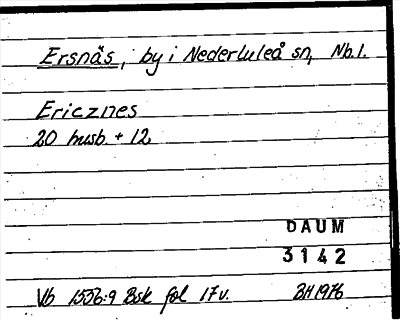 Ersnäs, by i Nederluleå sn, Nb.l.
Ericznes
20 husb. + 12
DAUM
3142
Vb 1556:9 Bsk fol 17v. BH 1976